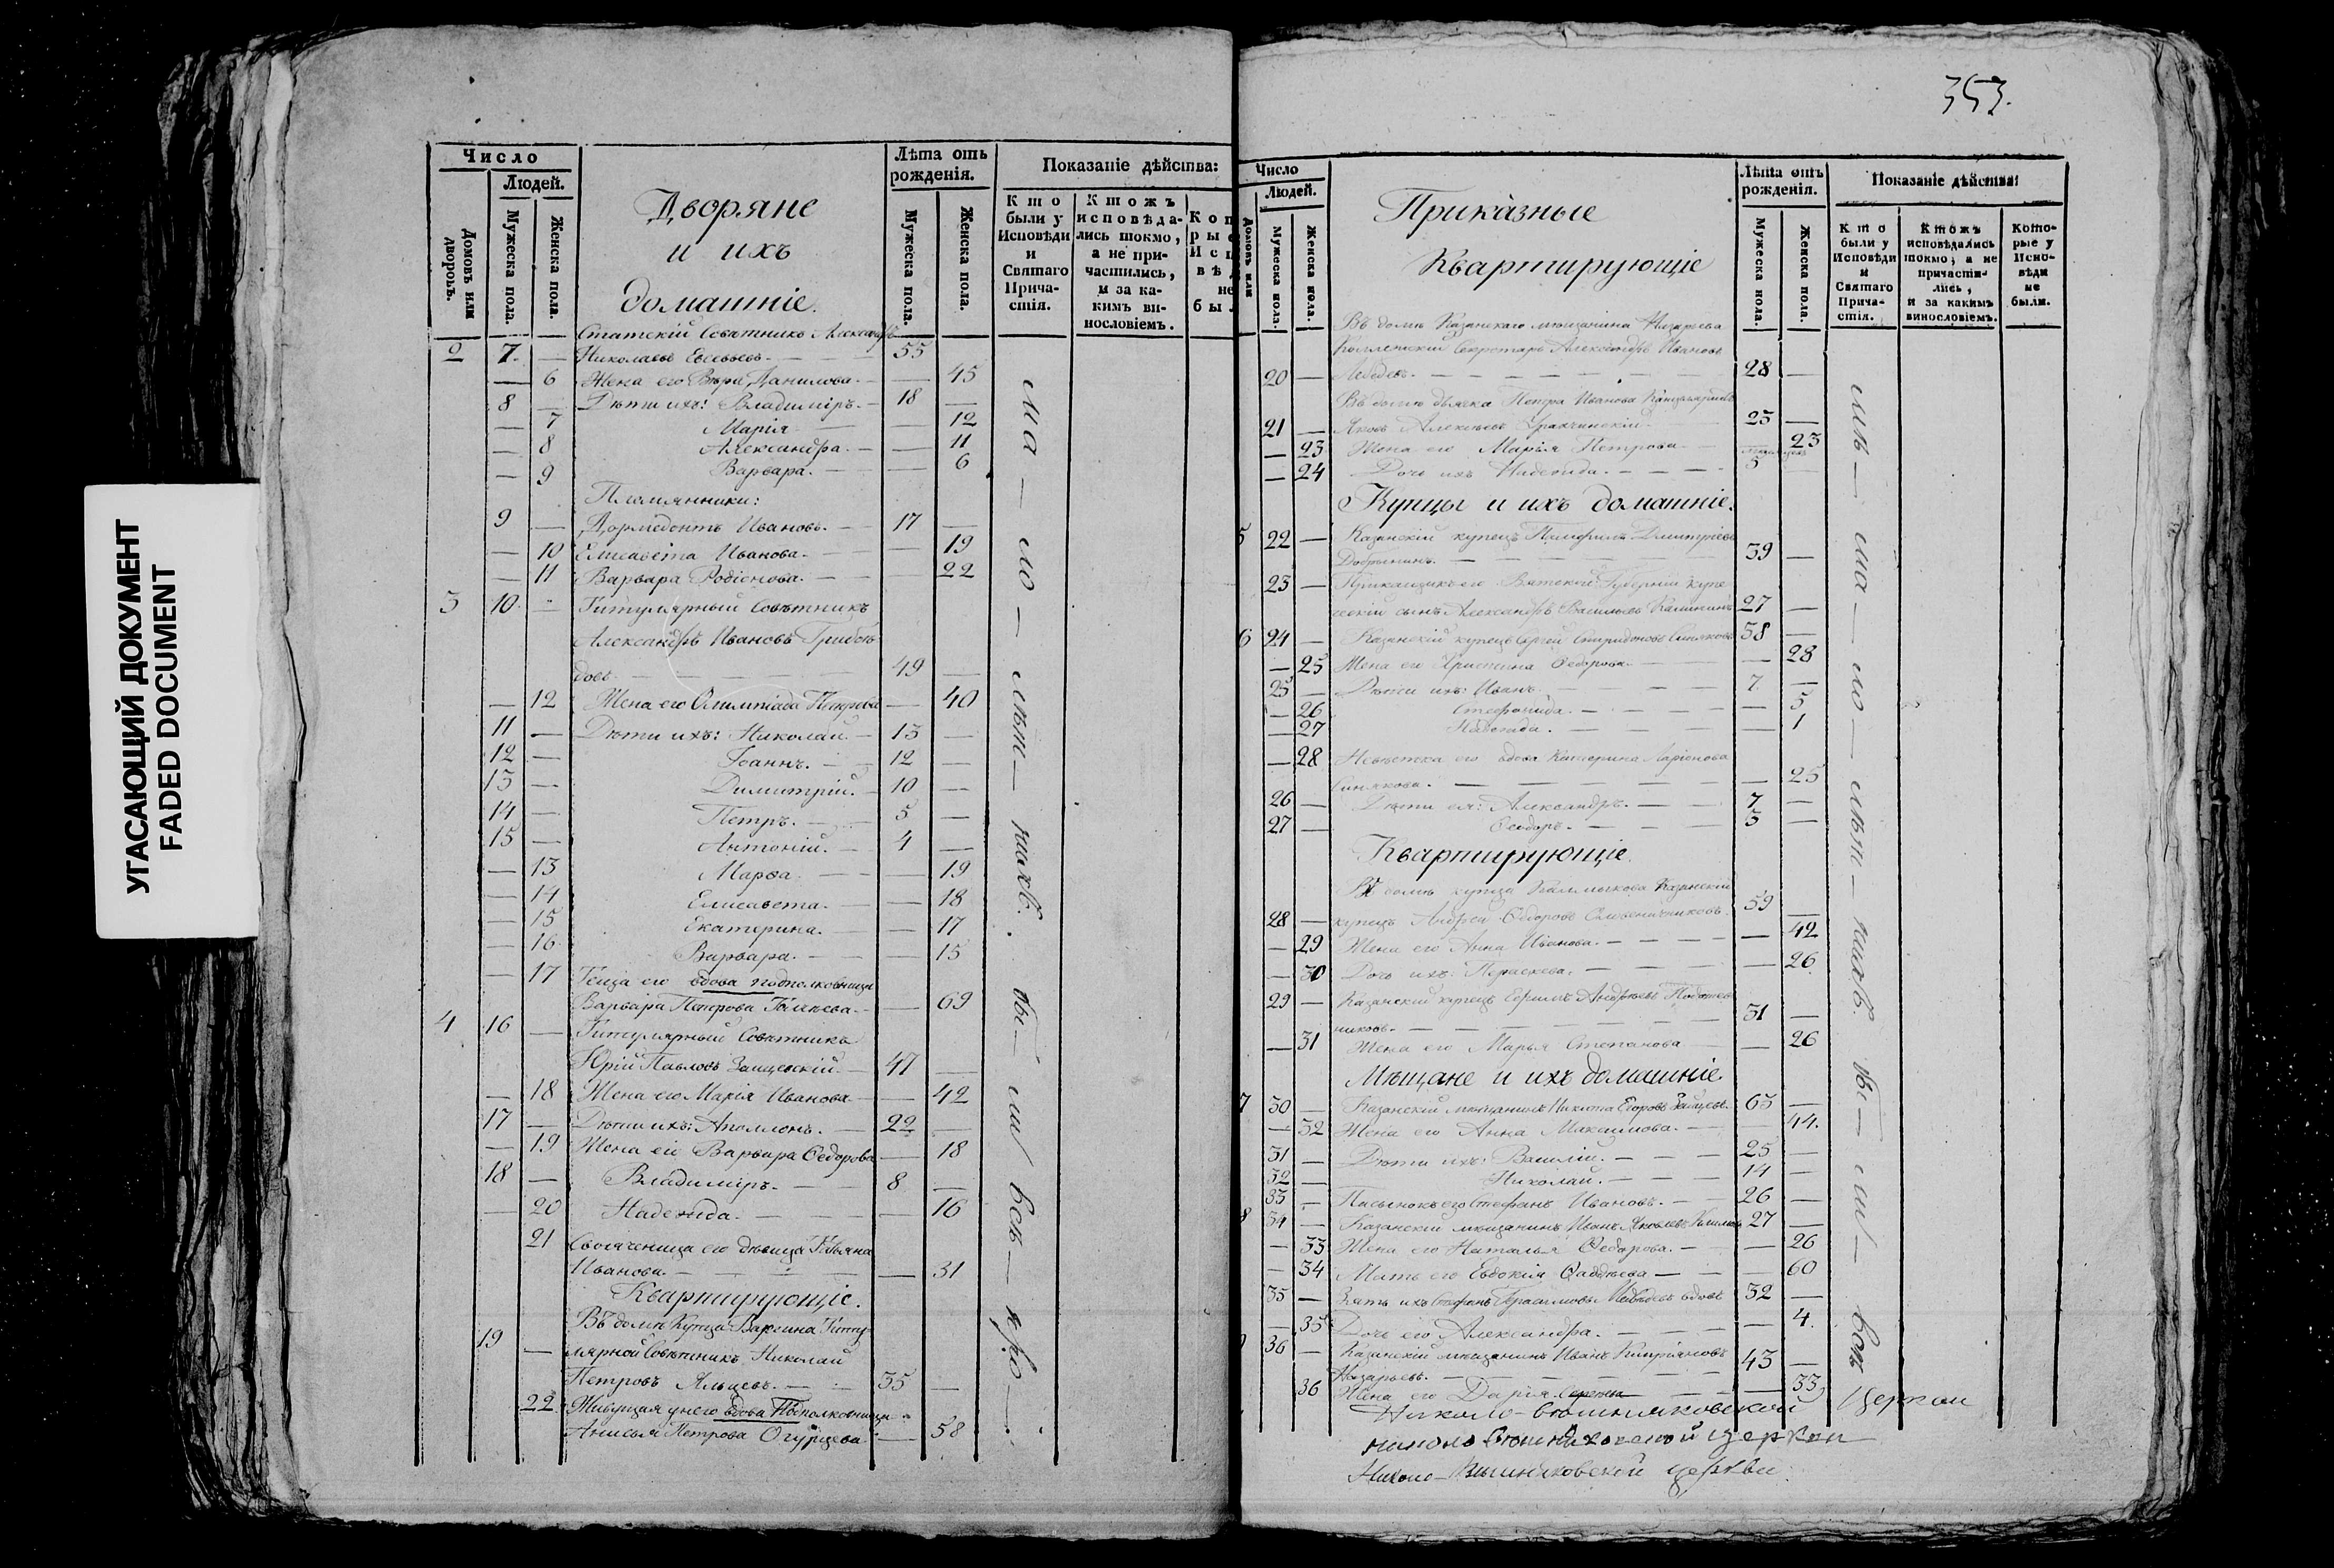 УГАСАЮЩИЙ ДОКУМЕНТ
FADED DOCUMENT
Число
Людей.
Домовъ или дворовъ.
Мужеска пола.
Женска пола.
Дворяне
и ихъ
домашніе.
Лѣта отъ рожденія.
Мужеска пола.
Женска пола.
Показаніе дѣйства:
Кто были у Исповѣди и Святаго Причастія.
Ктожъ исповѣдались токмо, а не причастились, и за какимъ винословіемъ.
Статскій Совѣтникъ Александръ
2 7. — Николаевъ Евсевьевъ. — 55
— 6 Жена его Вѣра Данилова. — — 45
8 — Дѣти ихъ: Владиміръ. — 18 —
— 7 Марія — 12
— 8 Александра. — — 11
— 9 Варвара. — — 6
Племянники:
9 — Дормедонтъ Ивановъ. — 17 —
— 10 Елисавета Иванова. — — 19
— 11 Варвара Родіонова. — — 22
3 10. — Титулярный Совѣтникъ
Александръ Ивановъ Грибоѣ-
довъ. — 49 —
— 12 Жена его Олимпіада Петрова — 40
11 — Дѣти ихъ: Николай. — 13 —
12 — Іоаннъ. — 12 —
13 — Димитрій. — 10 —
14 — Петръ. — 5 —
15 — Антоній. — 4 —
— 13 Марѳа. — — 19
— 14 Елисавета. — — 18
— 15 Екатерина. — — 17
— 16 Варвара. — — 15
— 17 Теща его вдова подполковница
Варвара Петрова — 69
4 16 — Титулярный Совѣтникъ
Юрій Павловъ — 47 —
— 18 Жена его Марія Иванова — — 42
17 — Дѣти ихъ: Аполлонъ. — 22 —
— 19 Жена его Варвара Ѳедорова — 18
18 — Владиміръ. — 8 —
— 20 Надежда. — — 16
21 Свояченица его дѣвица Татьяна
Иванова. — — 31
Квартирующіе.
Въ домѣ Купца Титу-
19 — лярной Совѣтникъ Николай
Петровъ — 35 —
22. Живущая у него вдова Подполковница
Анисья Петрова Огурцева — 58
353.
Число
Людей.
Домовъ или
Мужеска пола.
Женска пола.
Приказные
Квартирующіе
Лѣта отъ рожденія.
Мужеска пола.
Женска пола.
Показаніе дѣйства:
Кто были у Исповѣди и Святаго Причастія.
Ктожъ исповѣдались токмо, а не причастились, и за какимъ винословіемъ.
Которые у Исповѣди не были.
Въ домѣ Казанскаго мѣщанина Назарьева
Коллежскій Секретарь Александръ Ивановъ
20 — Лебедевъ. — 28 —
Въ домѣ дьячка Петра Иванова Канцеляристъ
21 — Яковъ Алексѣевъ — 23 —
— 23 Жена его Марья Петрова — 23
— 24 Дочь ихъ Надежда. — 5
Купцы и ихъ домашніе.
5 22 — Казанскій купецъ Памфилъ Дмитріевъ
Добрынинъ. — 39 —
23 — Прикащикъ его Вятской Губерніи купе-
ческій сынъ Александръ Васильевъ Калининъ 27 —
6 24 — Казанскій купецъ Сергѣй Спиридоновъ Синяковъ 38 —
— 25 Жена его Христина Ѳедорова. — — 28
25 — Дѣти ихъ: Иванъ. — 7 —
— 26 Степонида. — — 5
— 27 Надежда. — — 1
— 28 Невѣстка его вдова Катерина Ларіонова
Синякова. — — 25
26 — Дѣти ея: Александръ. — 7 —
27 — Ѳеодоръ. — 3 —
Квартирующіе.
Въ домѣ купца Калмыкова Казанскій
28 — купецъ Андрей Ѳедоровъ 59 —
— 29 Жена его Анна Иванова. — — 42
— 30 Дочь ихъ: Параскева. — — 26
29 — Казанскій купецъ Ефимъ Андреевъ
никовъ. — 31 —
— 31 Жена его Марья Степанова — 26
Мѣщане и ихъ домашніе.
7 30 — Казанскій мѣщанинъ Никита Егоровъ Зайцевъ. 63 —
— 32 Жена его Анна Максимова. — — 44.
31 — Дѣти ихъ: Василій. — 25 —
32 — Николай. — 14 —
33 — Пасынокъ его Стефанъ Ивановъ. — 26 —
8 34 — Казанскій мѣщанинъ Иванъ Яковлевъ 27 —
— 33 Жена его Наталья Ѳедорова. — — 26
— 34 Мать его Евдокія Ѳаддѣева — — 60
35 — Зять ихъ Стефанъ Герасимовъ вдовъ 32 —
— 35 Дочь его Александра. — — 4.
36 — Казанскій мѣщанинъ Иванъ Кипріановъ
Назарьевъ. — 43 —
36 Жена его Дарья Сергѣева — 33
Николо-Вешняковской Церкви
Николо Вешняковской церкви
Николо-Вишняковской церкви.